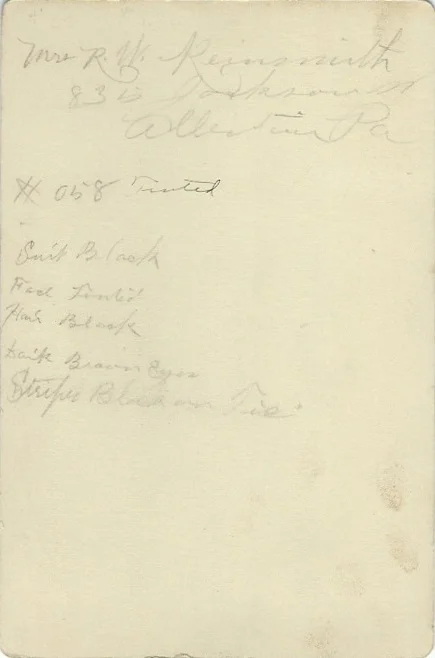 Mrs R. W. Reinsmith
Jackson St
Allentown Pa
# 058 Tinted
Suit Black
Face Tinted
Hair Black
Dark Brown Eyes
Stripes Black on Tie